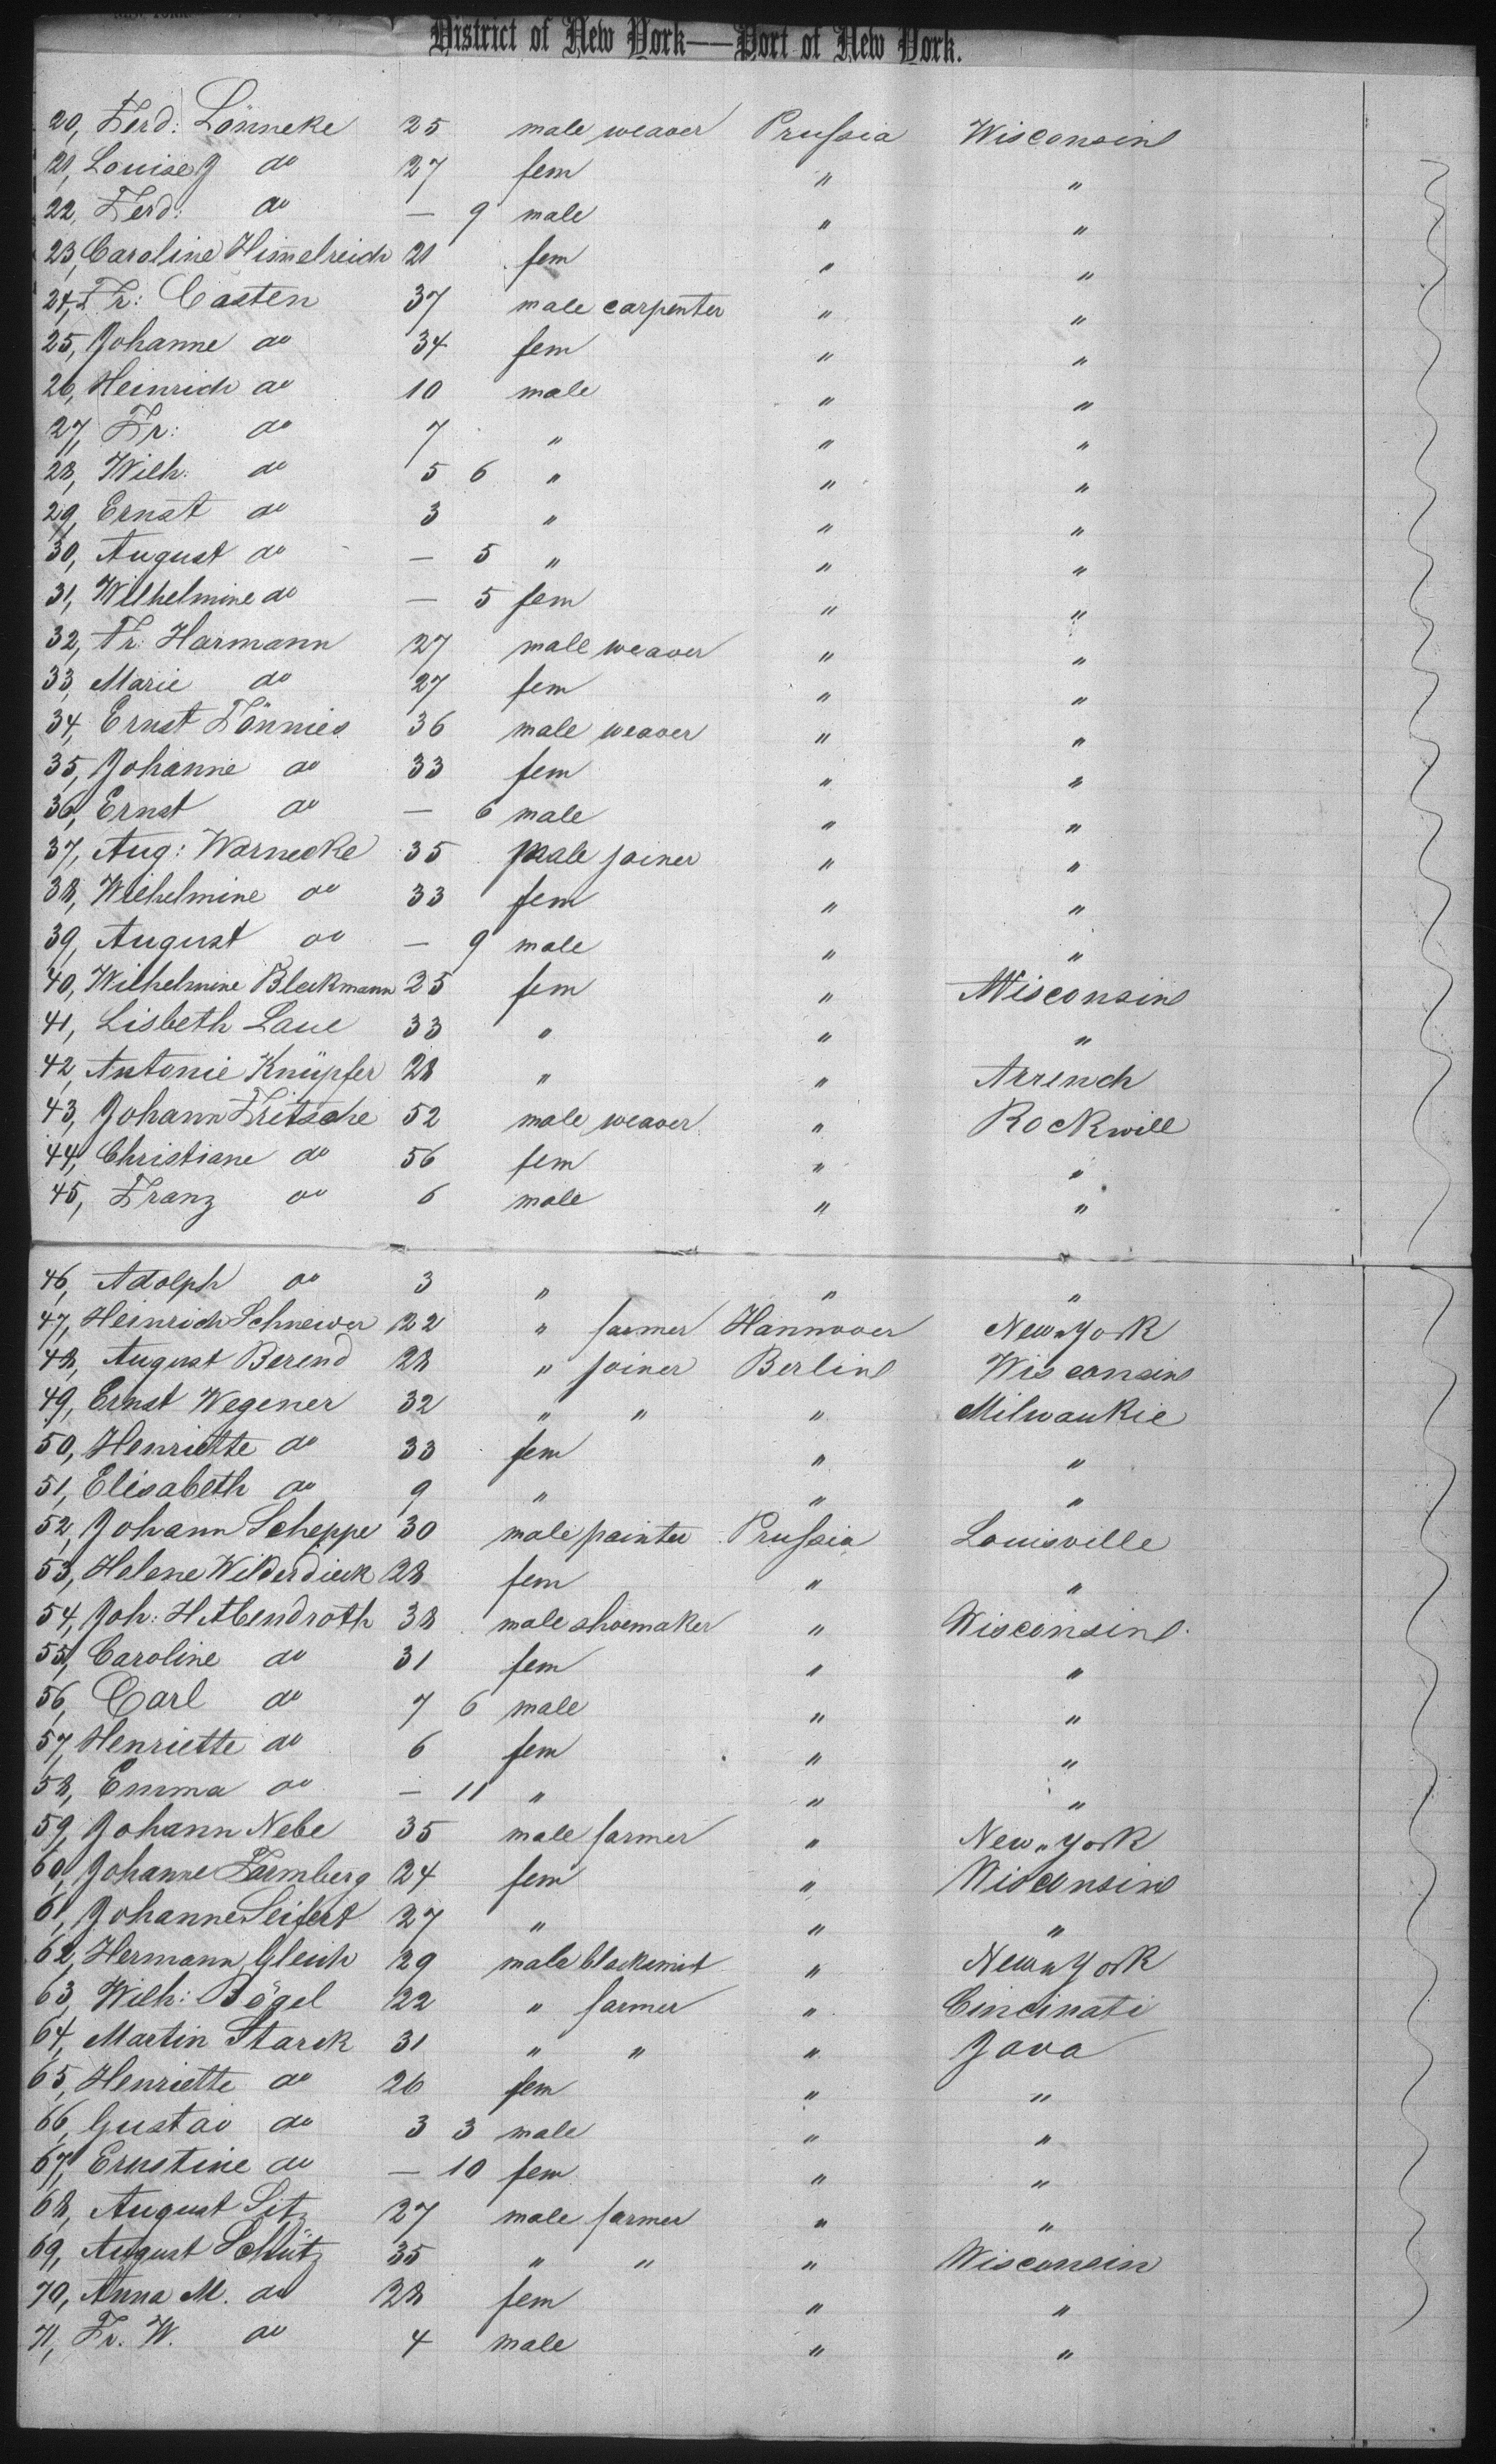 District of New York — Port of New York.
20, Ferd: Lönneke 25 male weaver Prussia Wisconsin
21, Louise J do 27 fem " "
22, Ferd: do — 9 male " "
23, Caroline Himmelreich 21 fem " "
24, Fr: Casten 37 male carpenter " "
25, Johanne do 34 fem " "
26, Heinrich do 10 male " "
27, Fr: do 7 " " "
28, Wilh: do 5 6 " " "
29, Ernst do 3 " " "
30, August do — 5 " " "
31, Wilhelmine do — 5 fem " "
32, Fr: Harmann 27 male weaver " "
33, Marie do 27 fem " "
34, Ernst Tönnies 36 male weaver " "
35, Johanne do 33 fem " "
36, Ernst do — 6 male " "
37, Aug: Warnecke 35 male joiner " "
38, Wilhelmine do 33 fem " "
39, August do — 9 male " "
40, Wilhelmine Bleckmann 25 fem " Wisconsin
41, Lisbeth Laue 33 " " "
42, Antonie Knüpfer 28 " " Arrench
43, Johann Fritsche 52 male weaver " Rockwill
44, Christiane do 56 fem " "
45, Franz do 6 male " "
46, Adolph do 3 " " "
47, Heinrich Schneiver 22 " farmer Hannover New York
48, August Berend 28 " joiner Berlin Wisconsin
49, Ernst Wegener 32 " " " Milwaukie
50, Henriette do 33 fem " "
51, Elisabeth do 9 " " "
52, Johann Scheppe 30 male painter Prussia Louisville
53, Helene Wilderdieck 28 fem " "
54, Joh: H Abendroth 38 male shoemaker " Wisconsin
55, Caroline do 31 fem " "
56, Carl do 7 6 male " "
57, Henriette do 6 fem " "
58, Emma do — 11 " " "
59, Johann Nebe 35 male farmer " New York
60, Johanne Farmberg 24 fem " Wisconsin
61, Johanne Seifert 27 " " "
62, Hermann Gleich 29 male blacksmit " New York
63, Wilh: Bögel 22 " farmer " Cincinati
64, Martin Starck 31 " " " Java
65, Henriette do 26 fem " "
66, Gustav do 3 3 male " "
67, Ernstine do — 10 fem " "
68, August Sitz 27 male farmer " "
69, August Schütz 35 " " " Wisconsin
70, Anna M. do 28 fem " "
71, Fr. W. do 4 male " "